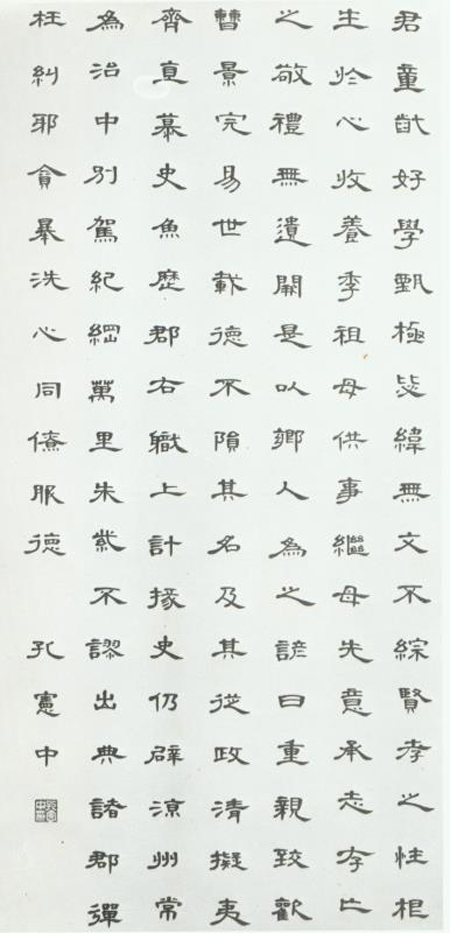 君童齔好學甄極毖緯無文不綜賢孝之性根
生於心收養季祖母供事繼母先意承志存亡
之敬禮無遺闕是以鄉人為之諺曰重親致歡
曹景完易世載德不隕其名及其從政清擬夷
齊直慕史魚歷郡右職上計掾史仍辟涼州常
為治中別駕紀綱萬里朱紫不謬出典諸郡彈
枉糾邪貪暴洗心同僚服德 孔憲中